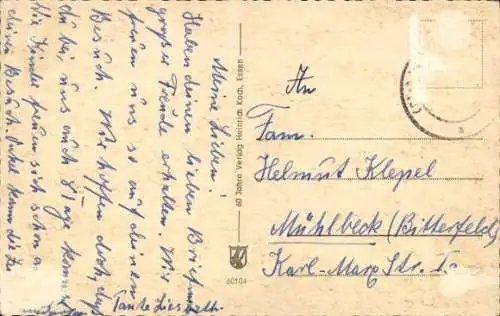 Meine Lieben!
Haben deinen lieben Brief mit
großer Freude erhalten. Wir
freuen uns so auf deinen
Besuch. Wir hoffen doch, daß
du bei uns auch Tage kannst
die Kinder freuen sich schon a
deinen Besuch. Onkel kann die
Tante Liesbeth.
60 Jahre Verlag Heinrich Koch, Essen
60104
An
Fam.
Helmut Klepel
Mühlbeck (Bitterfeld)
Karl-Marx Str. 1.